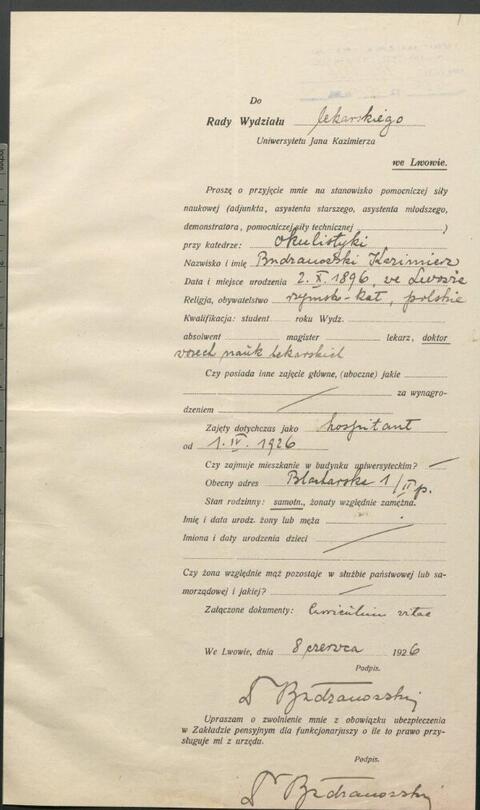 Do
Rady Wydziału lekarskiego
Uniwersytetu Jana Kazimierza
we Lwowie.
Proszę o przyjęcie mnie na stanowisko pomocniczej siły
naukowej (adjunkta, asystenta starszego, asystenta młodszego,
demonstratora, pomocniczej siły technicznej )
przy katedrze: okulistyki
Nazwisko i imię Bndranowski Kazimierz
Data i miejsce urodzenia 2. X. 1896, we Lwowie
Religja, obywatelstwo rzymsko-kat, polskie
Kwalifikacja: student roku Wydz.
absolwent magister lekarz, doktor
wszech nauk lekarskich
Czy posiada inne zajęcie główne, (uboczne) jakie
za wynagro-
dzeniem
Zajęty dotychczas jako hospitant
od 1. IV. 1926
Czy zajmuje mieszkanie w budynku uniwersyteckim? —
Obecny adres Blacharska 1/II p.
Stan rodzinny: samotn., żonaty względnie zamężna.
Imię i data urodz. żony lub męża
Imiona i daty urodzenia dzieci
Czy żona względnie mąż pozostaje w służbie państwowej lub sa-
morządowej i jakiej?
Załączone dokumenty: curriculum vitae
We Lwowie, dnia 8 czerwca 1926
Podpis.
Upraszam o zwolnienie mnie z obowiązku ubezpieczenia
w Zakładzie pensyjnym dla funkcjonarjuszy o ile to prawo przy-
sługuje mi z urzędu.
Podpis.